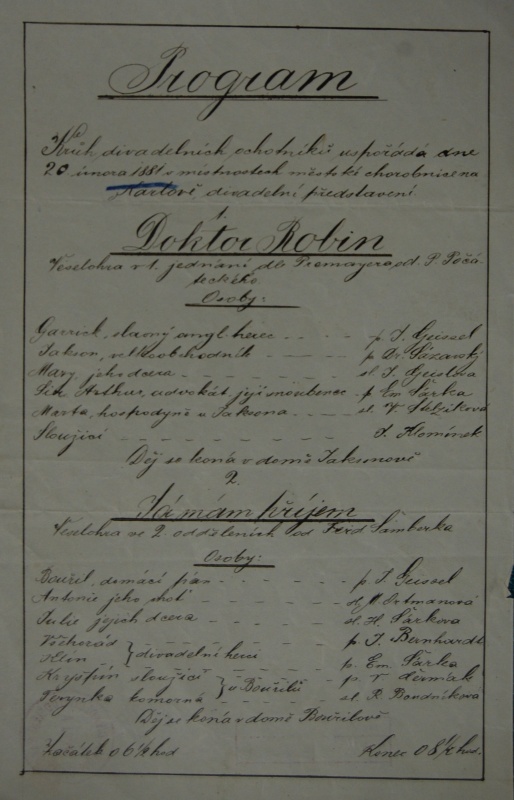 Program
Kruh divadelních ochotníků uspořádá dne
20 února 1881 v místnostech městské chorobnice na
Karlově divadelní představení
1.
Doktor Robin
Veselohra v 1. jednání dle Premayera od P. Počá-
teckého.
Osoby:
Garrick, slavný angl. herec - - - - p. J. Geissel
Jakson, velkoobchodník - - - - p. Dr. Lázanský
Mary, jeho dcera - - - - - sl. J.
Sir Arthur, advokát, její snoubenec - p. Em. Šárka
Marta, hospodyně u Jaksona - - - - sl. V.
Sloužící - - - - - - - J. Klomínek
Děj se koná v domě Jaksonově
2.
Já mám příjem
Veselohra ve 2. odděleních od Ferd. Šamberka
Osoby:
Bouřil, domácí pán - - - - - p. J. Geissel
Antonie jeho choť - - - - - Ortmanová
Julie jejich dcera - - - - - sl. H. Šárkova
Všehorád - - - - p. J. Bernhardt
Hlin } divadelní herci - - - p. Em. Šárka
Kryšpín sloužící - - - p. V. Čermák
Terynka komorná } u Bouřilů - - sl. R. Bondníkova
Děj se koná v domě Bouřilově
Začátek o 6½ hod Konec o 8½ hod.